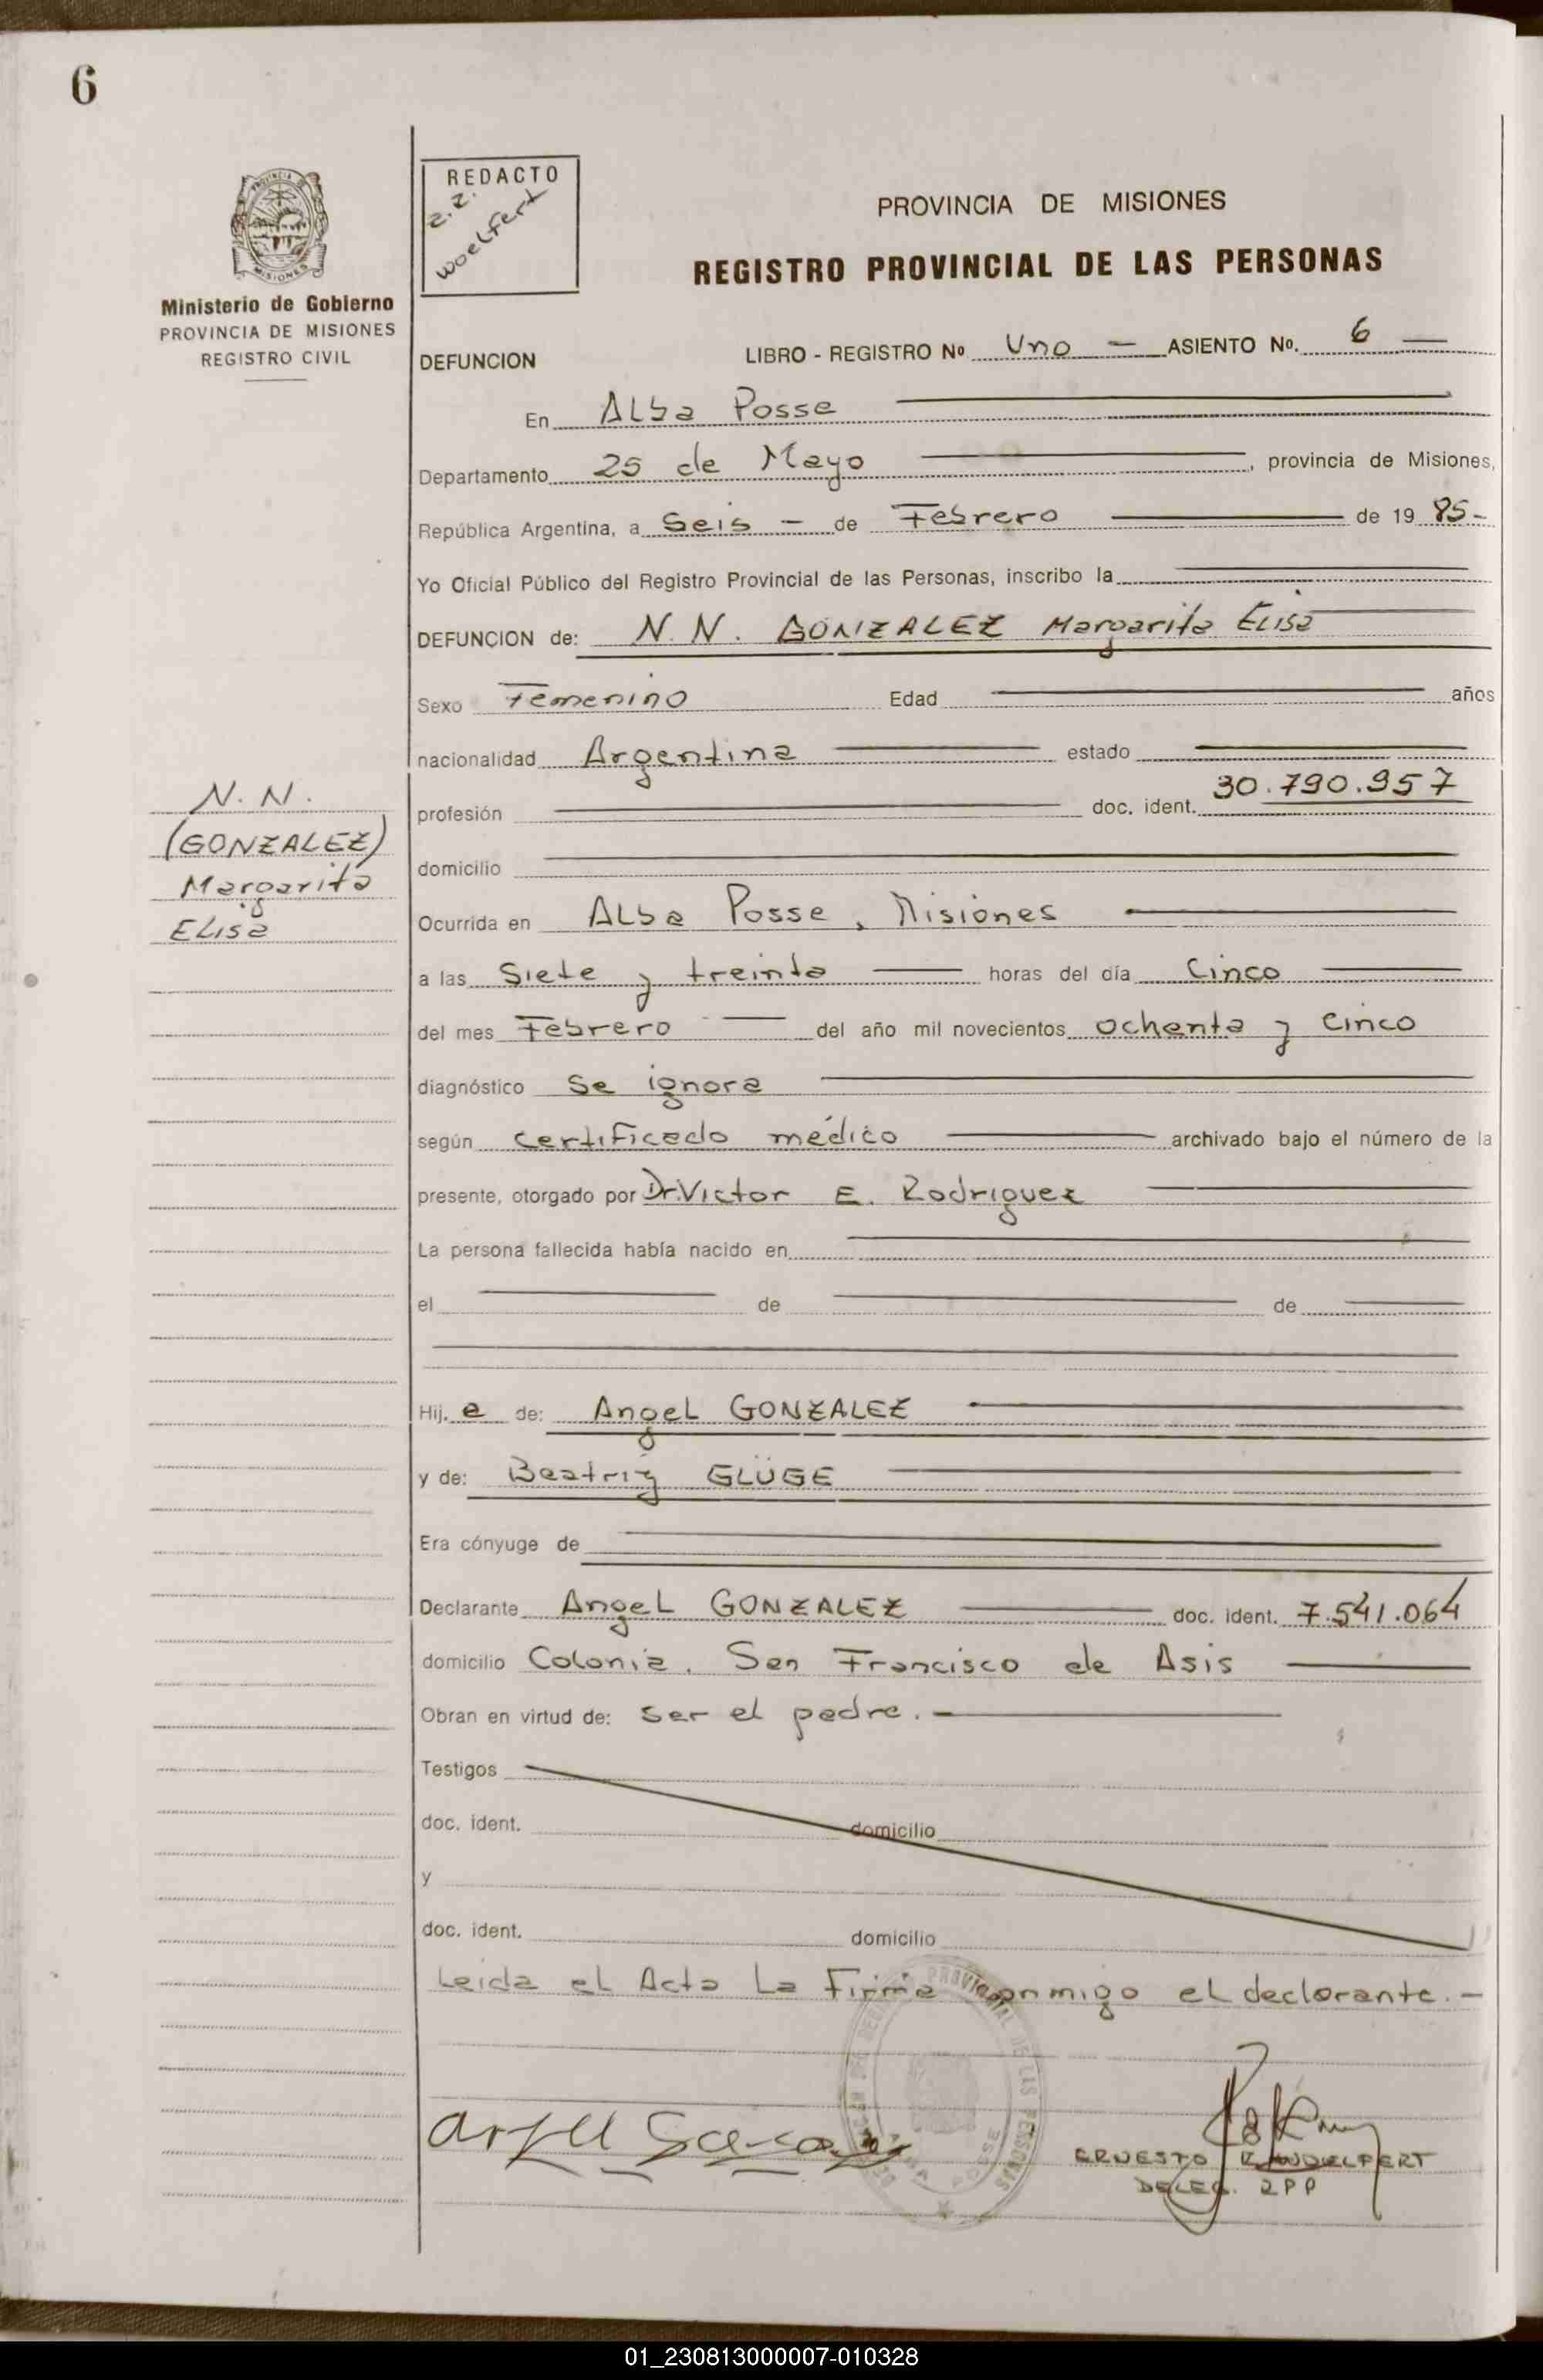 6
MISIONES
Ministerio de Gobierno
PROVINCIA DE MISIONES
REGISTRO CIVIL
REDACTO
woelfert
PROVINCIA DE MISIONES
REGISTRO PROVINCIAL DE LAS PERSONAS
DEFUNCION LIBRO - REGISTRO Nº Uno — ASIENTO No. 6 —
En Alba Posse
Departamento 25 de Mayo , provincia de Misiones,
República Argentina, a Seis - de Febrero de 19 85-
Yo Oficial Público del Registro Provincial de las Personas, inscribo la
DEFUNCION de: N. N. GONZALEZ Margarita Elisa
Sexo Femenino Edad años
nacionalidad Argentina estado
profesión doc. ident. 30.790.957
domicilio
Ocurrida en Alba Posse, Misiones
a las Siete y treinta horas del día Cinco
del mes Febrero del año mil novecientos ochenta y cinco
diagnóstico Se ignora
según certificado médico archivado bajo el número de la
presente, otorgado por Dr. Victor E. Rodriguez
La persona fallecida había nacido en
el de de
Hij. a de: Angel GONZALEZ
y de: Beatriz GLÜGE
Era cónyuge de
Declarante Angel GONZALEZ doc. ident. 7.541.064
domicilio Colonia. San Francisco de Asis
Obran en virtud de: ser el padre.-
Testigos
doc. ident. domicilio
y
doc. ident. domicilio
Leida el Acta La Firma conmigo el declarante.-
ERNESTO R. WOELFERT
DELEG. RPP
N. N.
(GONZALEZ)
Margarita
Elisa
01_230813000007-010328